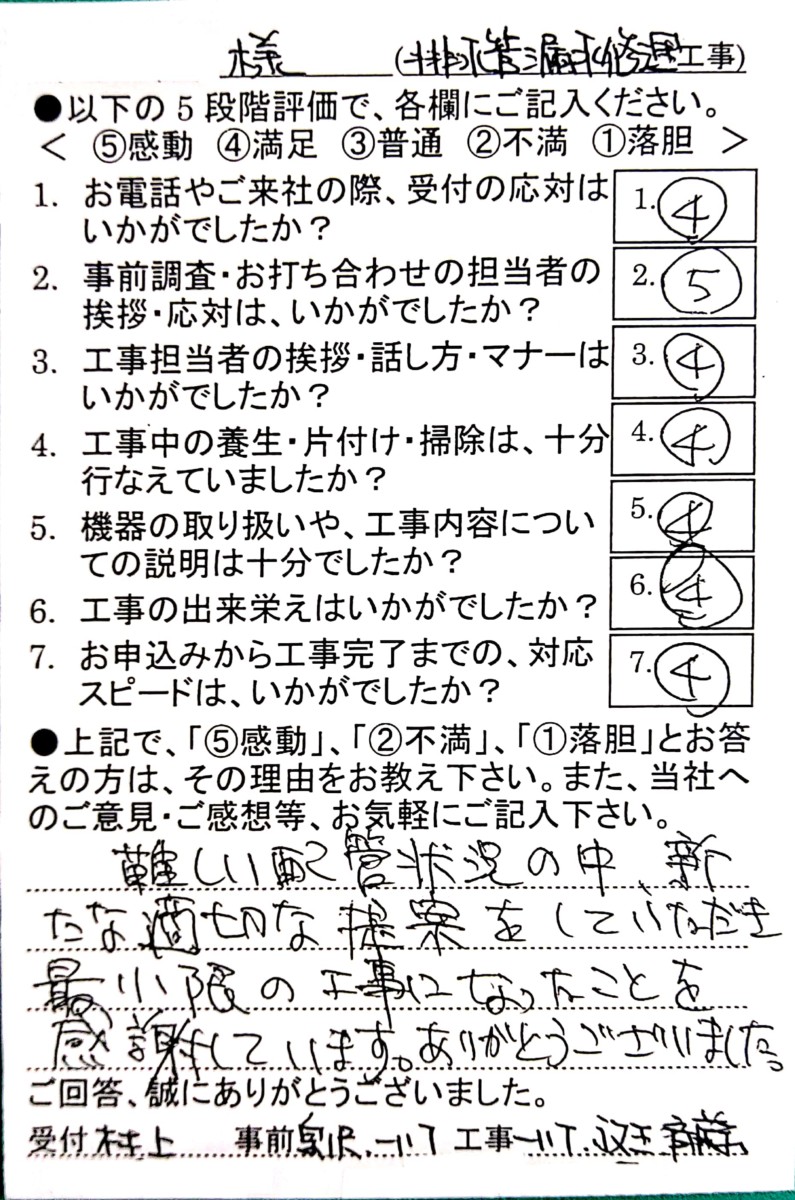 様 (排水管漏水修理工事)
●以下の5段階評価で、各欄にご記入ください。
＜ ⑤感動 ④満足 ③普通 ②不満 ①落胆 ＞
1. お電話やご来社の際、受付の応対は 1. ④
いかがでしたか？
2. 事前調査・お打ち合わせの担当者の 2. ⑤
挨拶・応対は、いかがでしたか？
3. 工事担当者の挨拶・話し方・マナーは 3. ④
いかがでしたか？
4. 工事中の養生・片付け・掃除は、十分 4. ④
行なえていましたか？
5. 機器の取り扱いや、工事内容につい 5. ④
ての説明は十分でしたか？
6. 工事の出来栄えはいかがでしたか？ 6. ④
7. お申込みから工事完了までの、対応 7. ④
スピードは、いかがでしたか？
●上記で、「⑤感動」、「②不満」、「①落胆」とお答
えの方は、その理由をお教え下さい。また、当社へ
のご意見・ご感想等、お気軽にご記入下さい。
難しい配管状況の中、新
たな適切な提案をしていただき
最小限の工事になったことを
感謝しています。ありがとうございました。
ご回答、誠にありがとうございました。
受付 村上 事前 工事